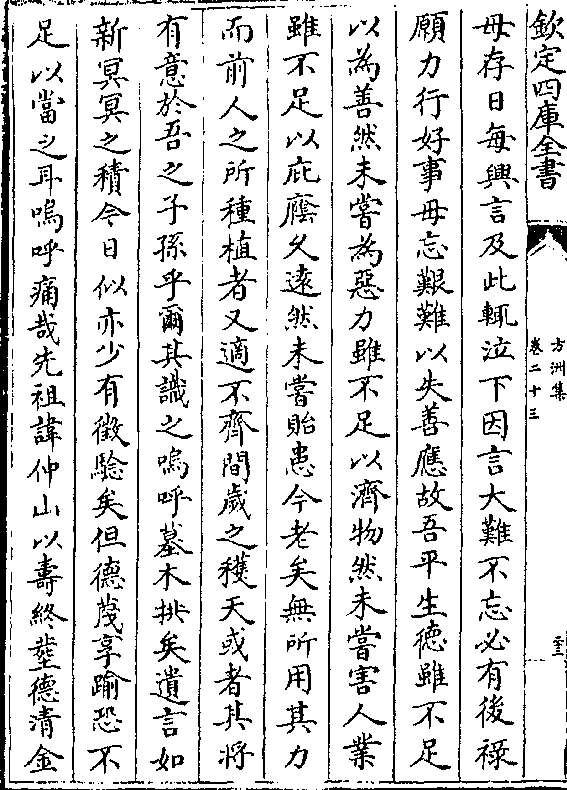 欽定四庫全書
方洲集
卷二十三
毋存日每興言及此輒泣下因言大難不忘必有後祿
願力行好事毋忘艱難以失善應故吾平生徳雖不足
以為善然未嘗為惡力雖不足以濟物然未嘗害人業
雖不足以庇廕久遠然未嘗貽患今老矣無所用其力
而前人之所種植者又適不齊間歲之穫天或者其將
有意於吾之子孫乎爾其識之嗚呼墓木拱矣遺言如
新冥冥之積今日似亦少有徵驗矣但德薄享踰恐不
足以當之耳嗚呼痛哉先祖諱仲山以壽終塟德清金